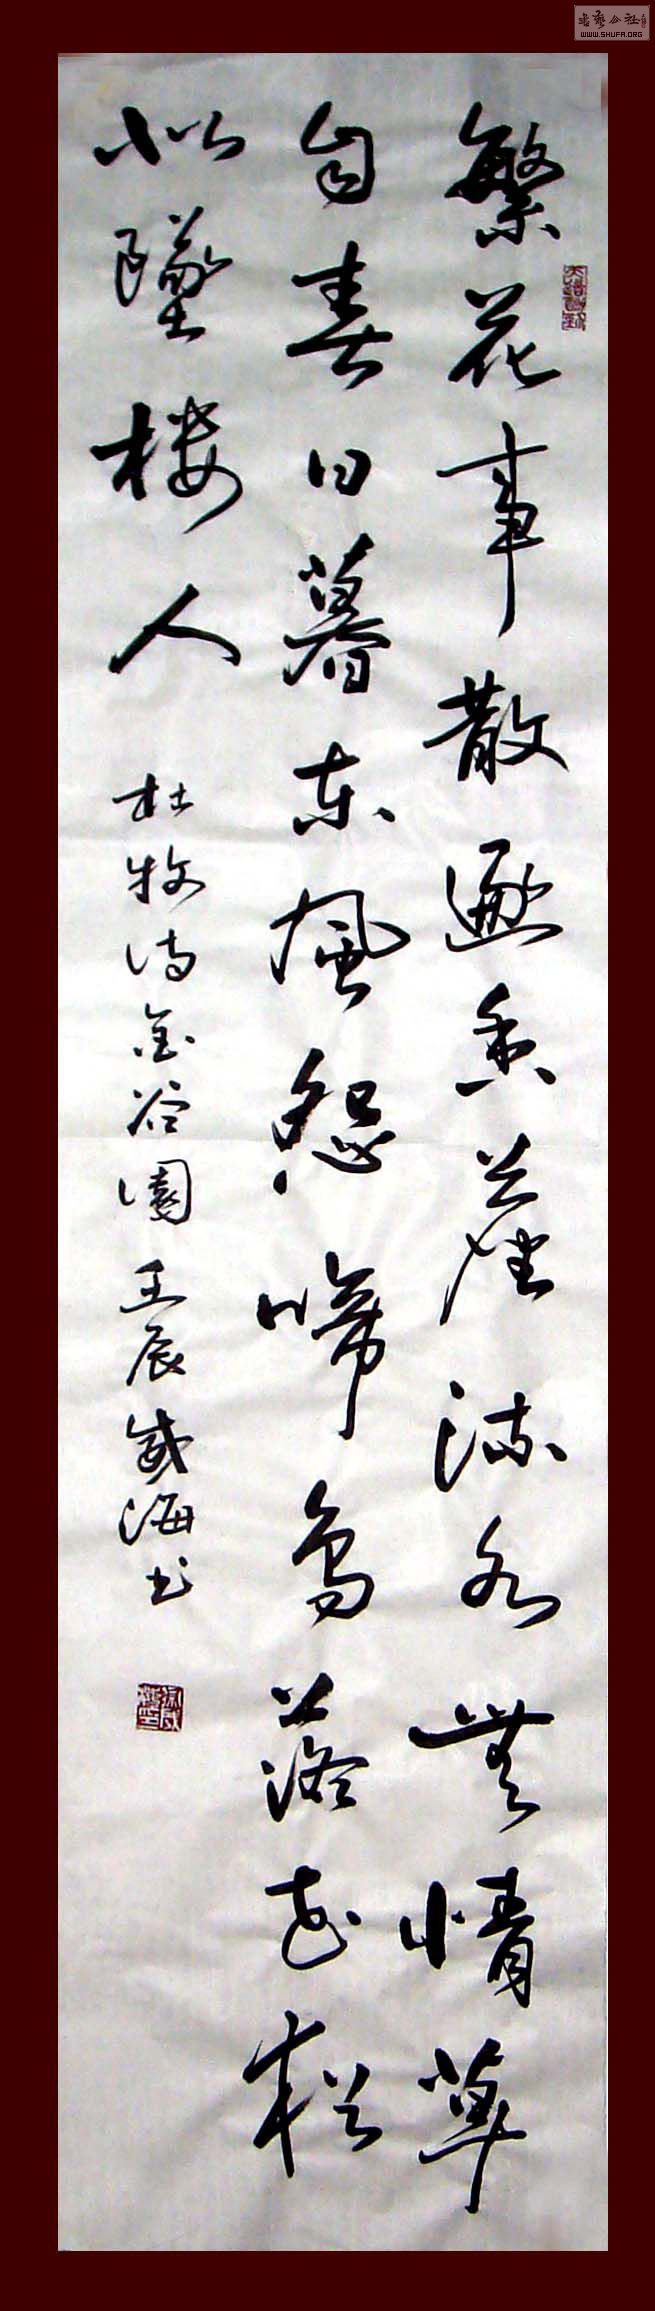 繁花事散逐香塵流水無情草
自春日暮东風怨啼鸟落花猶
似墜楼人 杜牧诗金谷園 壬辰 威海书
書藝公社
WWW.SHUFA.ORG